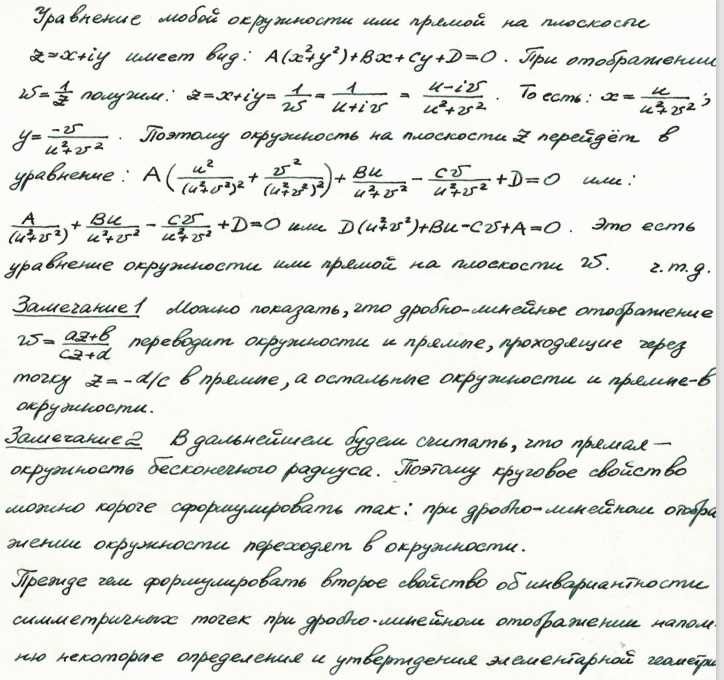 Уравнение любой окружности или прямой на плоскости
z=x+iy имеет вид: A(x²+y²)+Bx+Cy+D=0. При отображении
w=1/z получим: z=x+iy=1/w=1/(u+iv)=(u-iv)/(u²+v²). То есть: x=u/(u²+v²);
y=-v/(u²+v²). Поэтому окружность на плоскости z перейдёт в
уравнение: A(u²/(u²+v²)²+v²/(u²+v²)²)+Bu/(u²+v²)-Cv/(u²+v²)+D=0 или:
A/(u²+v²)+Bu/(u²+v²)-Cv/(u²+v²)+D=0 или D(u²+v²)+Bu-Cv+A=0. Это есть
уравнение окружности или прямой на плоскости w. ч.т.д.
Замечание 1 Можно показать, что дробно-линейное отображение
w=(az+b)/(cz+d) переводит окружности и прямые, проходящие через
точку z=-d/c в прямые, а остальные окружности и прямые-в
окружности.
Замечание 2 В дальнейшем будем считать, что прямая —
окружность бесконечного радиуса. Поэтому круговое свойство
можно короче сформулировать так: при дробно-линейном отобра
жении окружности переходят в окружности.
Прежде чем формулировать второе свойство об инвариантности
симметричных точек при дробно-линейном отображении напом-
ню некоторые определения и утверждения элементарной геометри